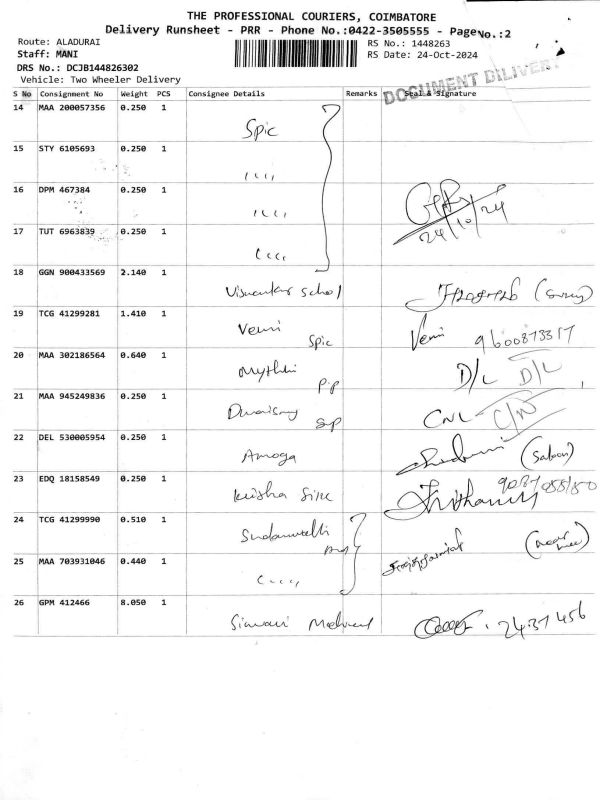 THE PROFESSIONAL COURIERS, COIMBATORE
Delivery Runsheet - PRR - Phone No.:0422-3505555 - PageNo.:2
Route: ALADURAI
RS No.: 1448263
Staff: MANI
RS Date: 24-Oct-2024
DRS No.: DCJB144826302
Vehicle: Two Wheeler Delivery
DOCUMENT DILIVERY
S No Consignment No Weight PCS Consignee Details Remarks Seal & Signature
14 MAA 200057356 0.250 1 Spic
15 STY 6105693 0.250 1 ,,,,
16 DPM 467384 0.250 1 ,,,,
24/10/24
17 TUT 6963839 0.250 1 ,,,,
18 GGN 900433569 2.140 1 School
19 TCG 41299281 1.410 1 Veni Spic Veni 9600873317
20 MAA 302186564 0.640 1 D/L D/L
21 MAA 945249836 0.250 1 CNL C/N
22 DEL 530005954 0.250 1 Amoga
23 EDQ 18158549 0.250 1
24 TCG 41299990 0.510 1
25 MAA 703931046 0.440 1 ,,,,
26 GPM 412466 8.050 1 2437456